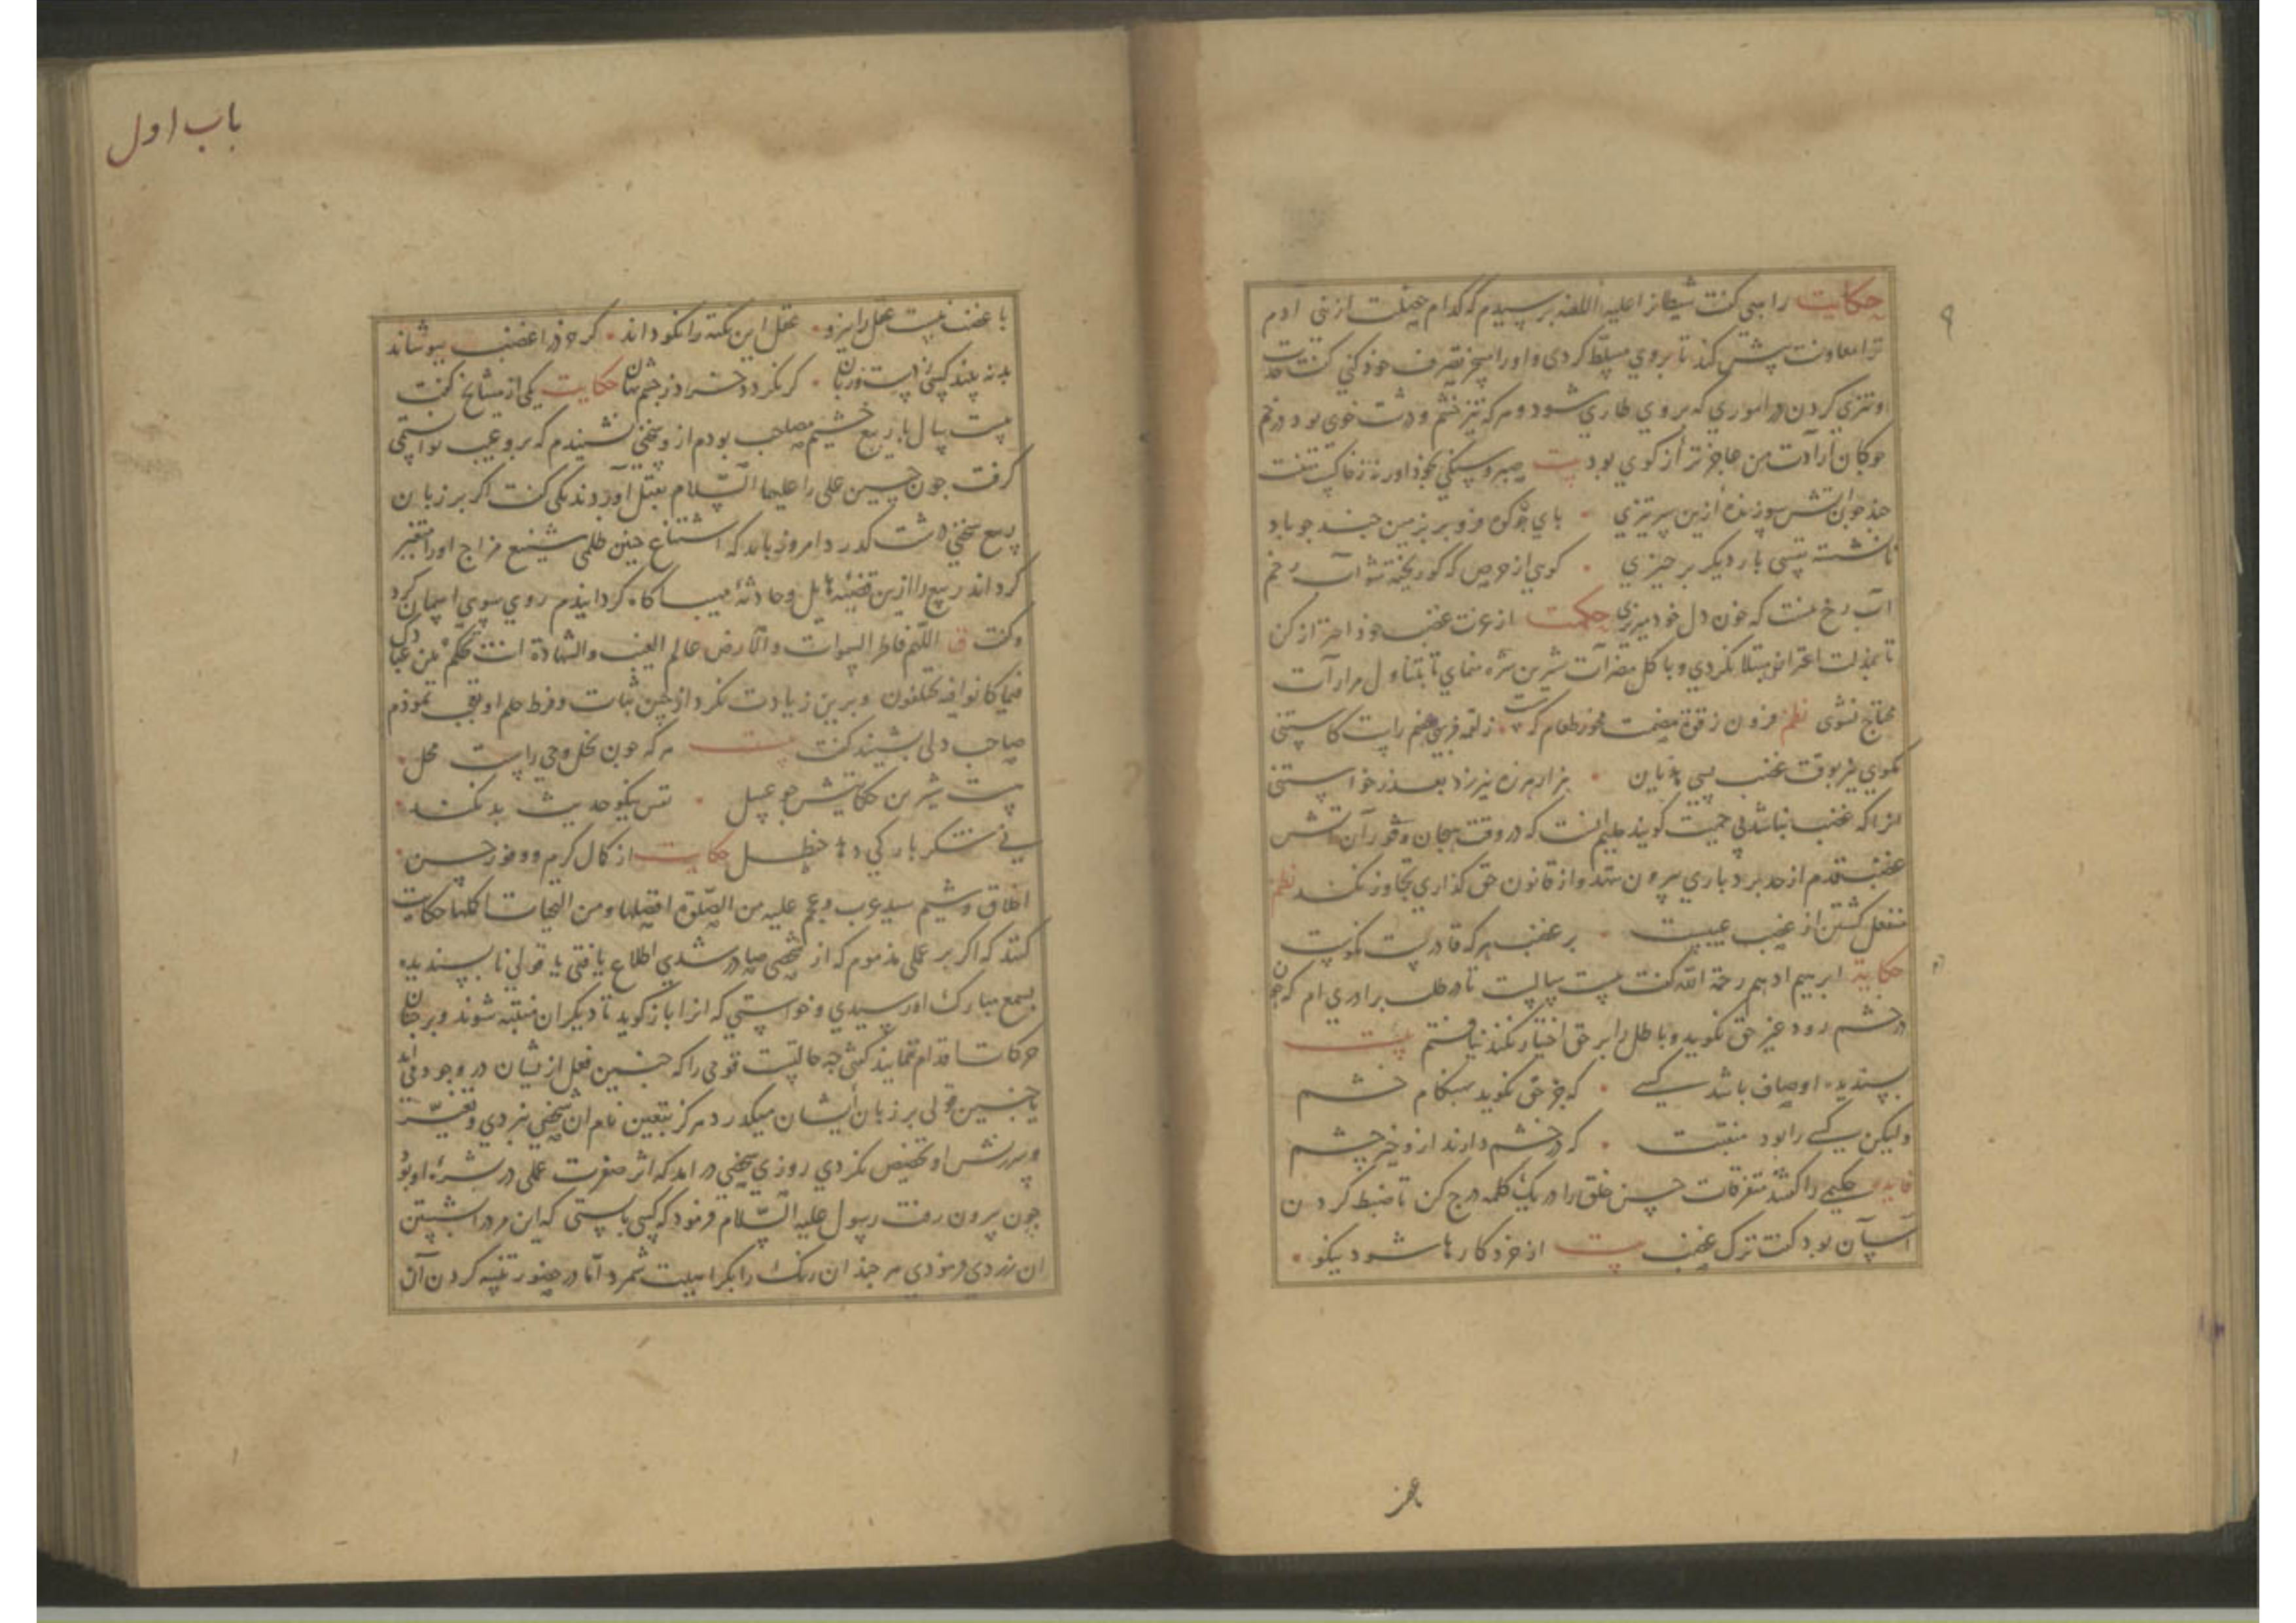 حکایت راهبی گفت شیطانرا علیه اللعنه پرسیدم که کدام خصلت از بنی آدم
ترا معاونت بیش کند تا بروی مسلط کردی و اورا مسخر تصرف خود کنی گفت حدت
او تیزی کردن در اموری که بروی طاری شود و هر که تیز خشم و درشت خوی بود در خم
جوکان ارادت من عاجزتر از کوی بود بیت صبر و سنکی بجوذ اور نه ز خاکیت
جند جون آتش سوزنده ازین سر تیزی • بای جو کوه فرو بر بزمین جند جو باد
نانشسته نفسی بار دیکر برخیزی • کوی از حرص که کو ریخته شو آب رخم
آب رخ نیست که خون دل خود میریزی حکمت از عزت غضب خود احتراز کن
تا بمذلت اعتذار مبتلا نکردی و با کل مضرات شیرین شره منمای تا بتناول مرارات
محتاج نشوی نظم فزون ز قوة هضمت مخور طعام که • ز لقمه فربهی هضم راست کاستنی
مکوی نیز بوقت غضب بسی هذیان • هزار هرزه نیرزد بعذر خواستنی
انرا که غضب نباشد بی حمیت کویند حلیم انست که در وقت هیجان و ثوران آتش
غضب قدم از حد بردباری بیرون ننهد و از قانون حق کذاری تجاوز نکند نظم
منفعل کشتن از غضب عیبست • بر غضب هر که قادرست نکوست
حکایة ابرهیم ادهم رحمة الله کفت بیست سالست تا در طلب برادری ام که جون
در خشم رود غیر حق نکوید و باطل را بر حق اختیار نکند نیافتم بیت
بسندیده اوصاف باشد کسی • که جز حق نکوید بهنکام خشم
ولیکن کسی را بود منقبت • که در خشم دارند ازو خیر جشم
فایده حکیمی را کفتند متفرقات حسن خلق را در یک کلمه درج کن تا ضبط کردن
آسان بود کفت ترک غضب بیت از خرد کارها شود نیکو •
باغضب
باب اول
با غضب نیست عقل را نیرو • عقل این نکته را نکو داند • کر خرد را غضب بپوشاند
بد نه بیند کسی ز دست و زبان • کر نکردد خرد ز جشم نهان حکایت یکی از مشایخ کفت
بیست سال با ربیع خثیم مصاحب بودم از و سخنی نشنیدم که برو عیب توانستمی
کرفت جون حسین علی را علیهما السلام بقتل آوردند یکی کفت اکر بر زبان
ربیع سخنی درشت کذرد امروز باشد که استماع جنین ظلمی شنیع مزاج اورا متغیر
کرداند ربیع را ازین قضیه هایل و حادثه مهیب آکاه کردانیدم روی سوی اسمان کرد
و کفت اللهم فاطر السموات والارض عالم الغیب والشهادة انت تحکم بین عبادک
فیما کانوا فیه یختلفون و برین زیادت نکرد از جنین ثبات و فرط حلم او تعجب نمودم
صاحب دلی بشنید کفت بیت هر که جون نخل وحی راست محل •
هست شیرین حکایتش جو عسل • نفس نیکو حدیث بد نکند •
نی شکر بار کی دهد حنظل حکایت از کمال کرم و وفور حسن •
اخلاق و شیم سید عرب و عجم علیه من الصلوة افضلها و من التحیات اکملها حکایت
کنند که اکر بر عملی مذموم که از شخصی صادر شدی اطلاع یافتی یا قولی نا بسندیده
بسمع مبارک او رسیدی و خواستی که انرا باز کوید تا دیکران متنبه شوند و بر جنان
حرکات اقدام ننمایند کفتی جه حالتست قومی را که جنین فعل از یشان در وجود می اید
یا جنین قولی بر زبان ایشان میکذرد هرکز بتعیین نام ان شخص نبردی و تعییر
و سرزنش او تخصیص نکردی روزی شخصی در امد که اثر صفرت عملی در بشره او بود
جون بیرون رفت رسول علیه السلام فرمود که کسی بایستی که این مرد را شستن
ان زردی فرمودی هر جند ان رنک را بکراهیت شمرد اما در حضور تنبیه کردن آن